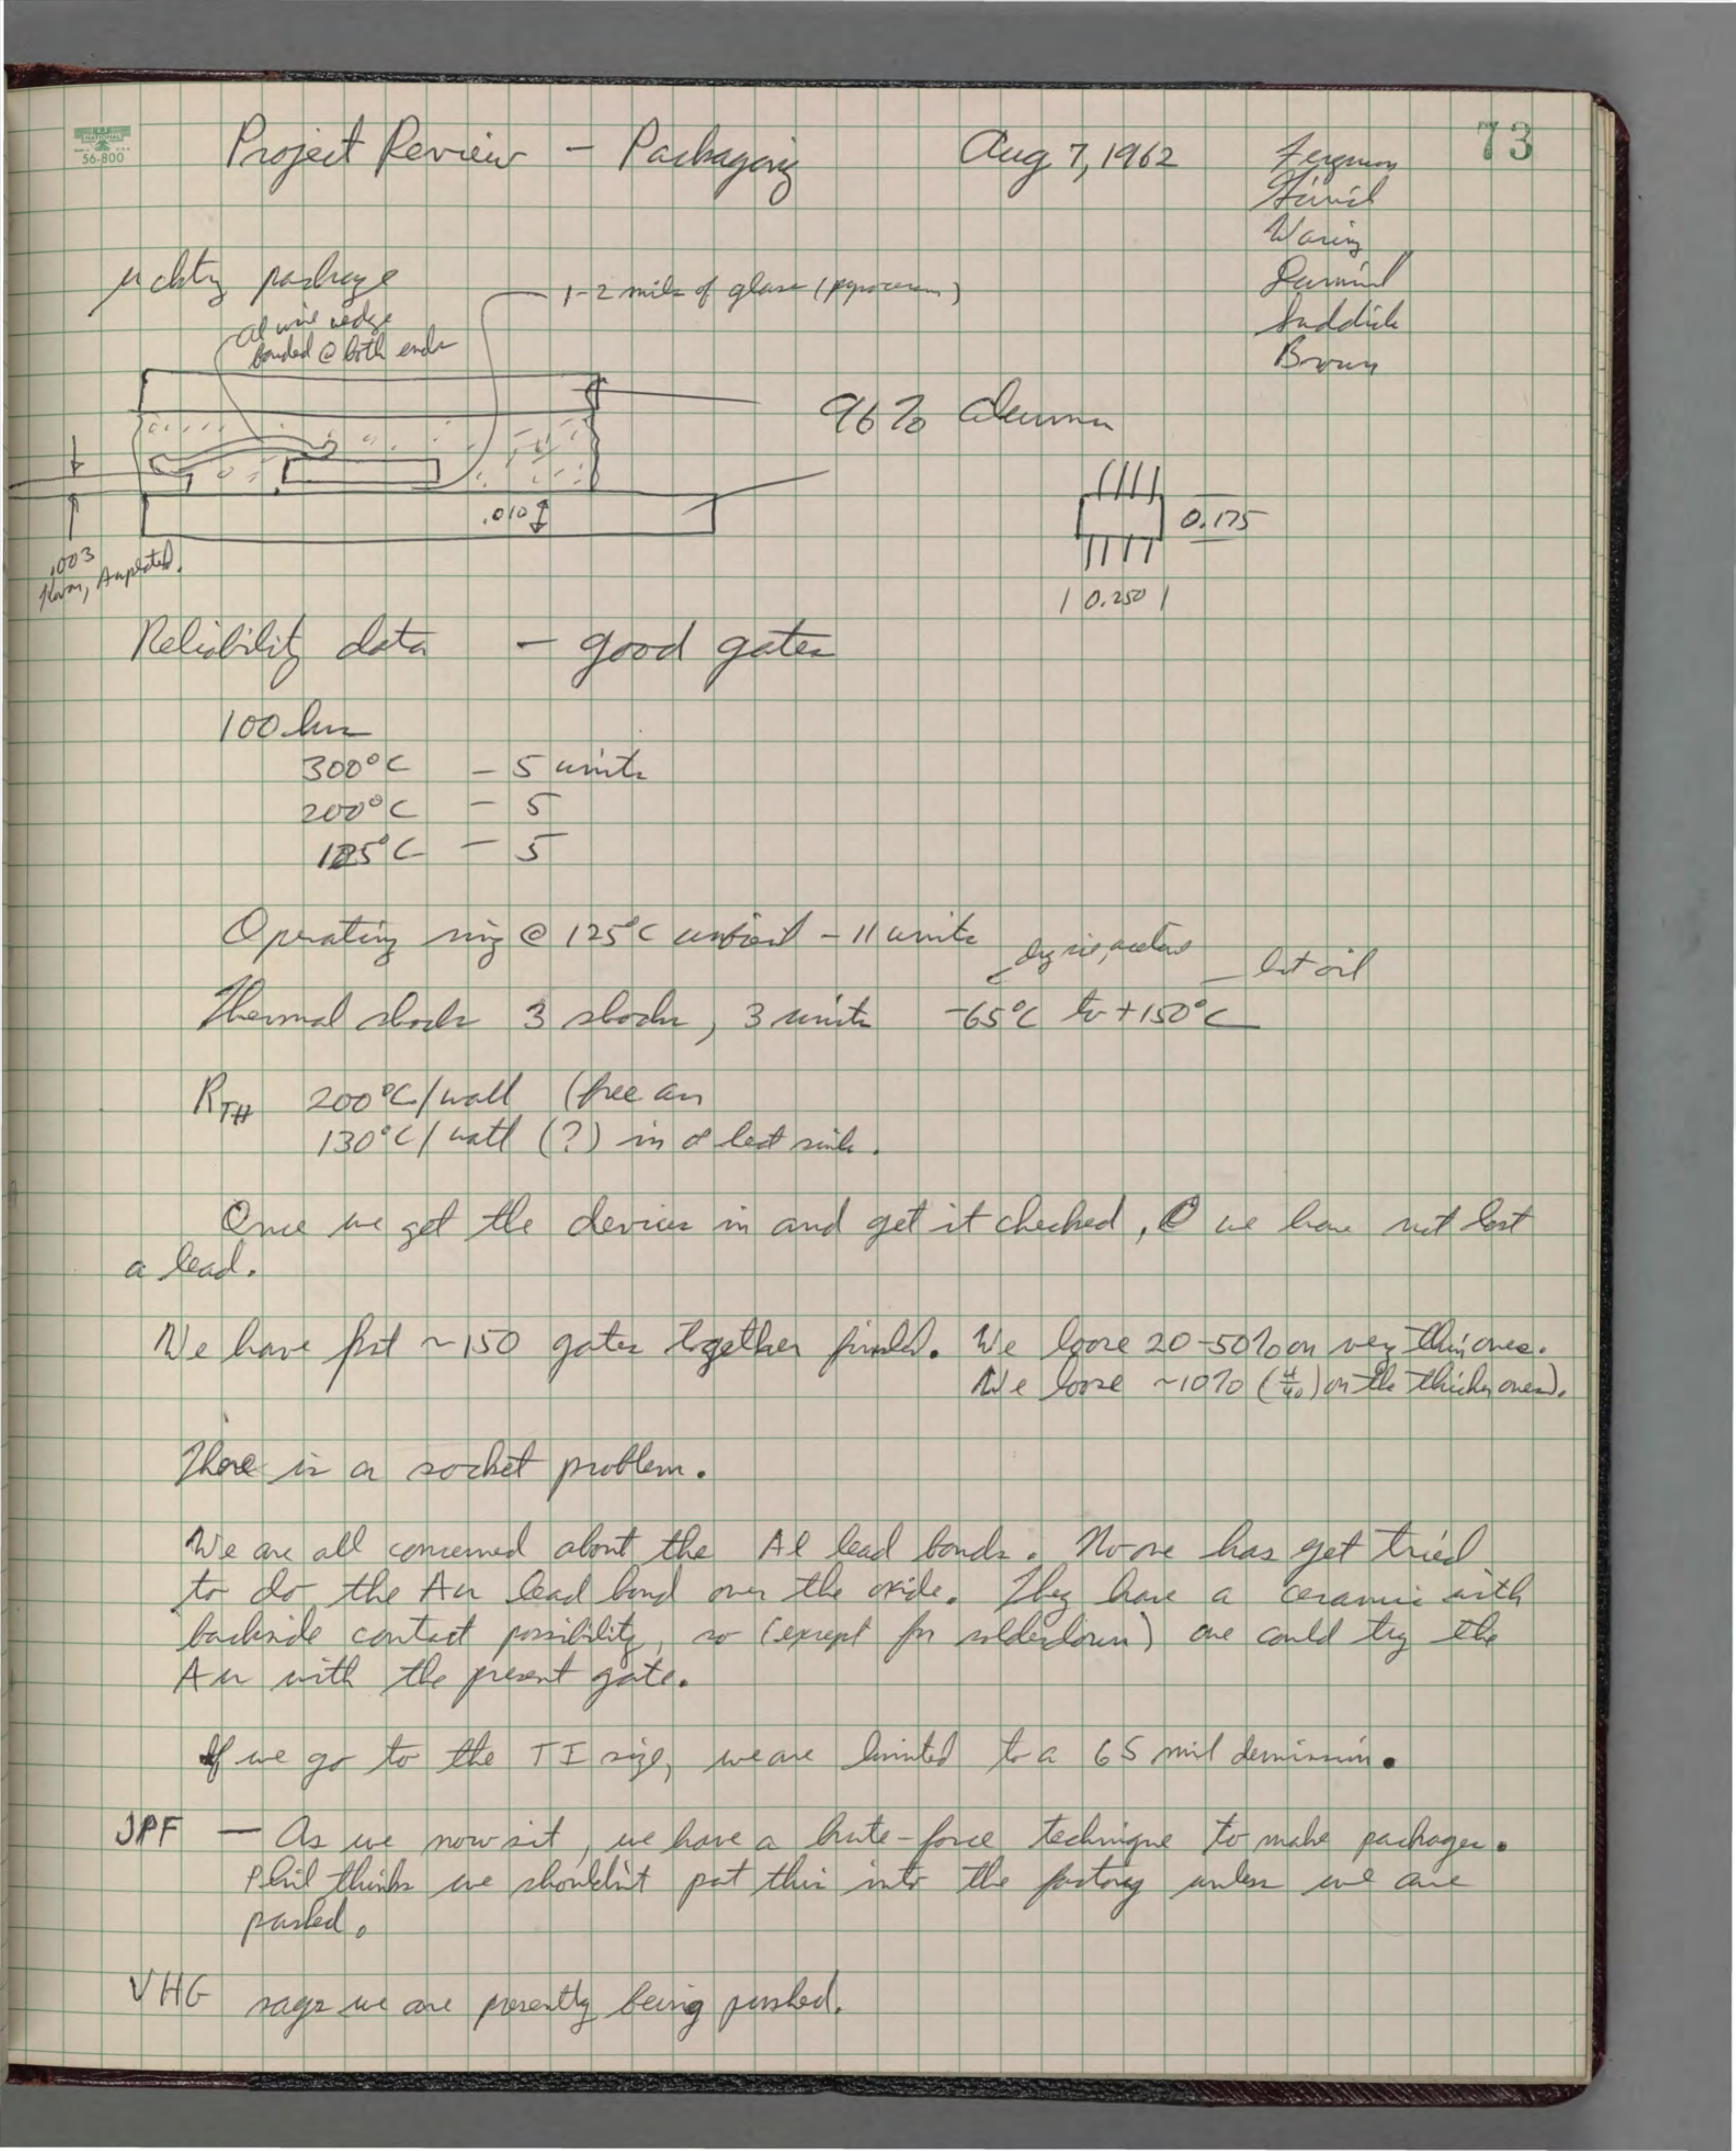 NATIONAL
56-800
Project Review - Packaging Aug 7, 1962 73
Ferguson
Waring
Suddick
Brown
μckty package
1-2 mils of glass (pyroceram)
Al wire wedge
bonded @ both ends
96% alumina
.010
.003
Kovar, Au plated.
0.175
0.250
Reliability data - good gates
100 hrs
300°C - 5 units
200°C - 5
125°C - 5
Operating ring @ 125°C ambient - 11 units
dry ice, acetone
hot oil
Thermal shock 3 shocks, 3 units -65°C to +150°C
RTH 200°C/watt (free air
130°C/watt (?) in a heat sink.
Once we get the devices in and get it checked, we have not lost
a lead.
We have put ~150 gates together finished. We loose 20-50% on very thin ones.
We loose ~10% (4/40) on the thicker ones).
There is a socket problem.
We are all concerned about the Al lead bonds. No one has yet tried
to do the Au lead bond over the oxide. They have a ceramic with
backside contact possibility, so (except for solderdown) one could try the
Au with the present gate.
If we go to the TI size, we are limited to a 65 mil dimension.
JPF - As we now sit, we have a brute-force technique to make packages.
Phil thinks we shouldn't put this into the factory unless we are
pushed.
VHG says we are presently being pushed.